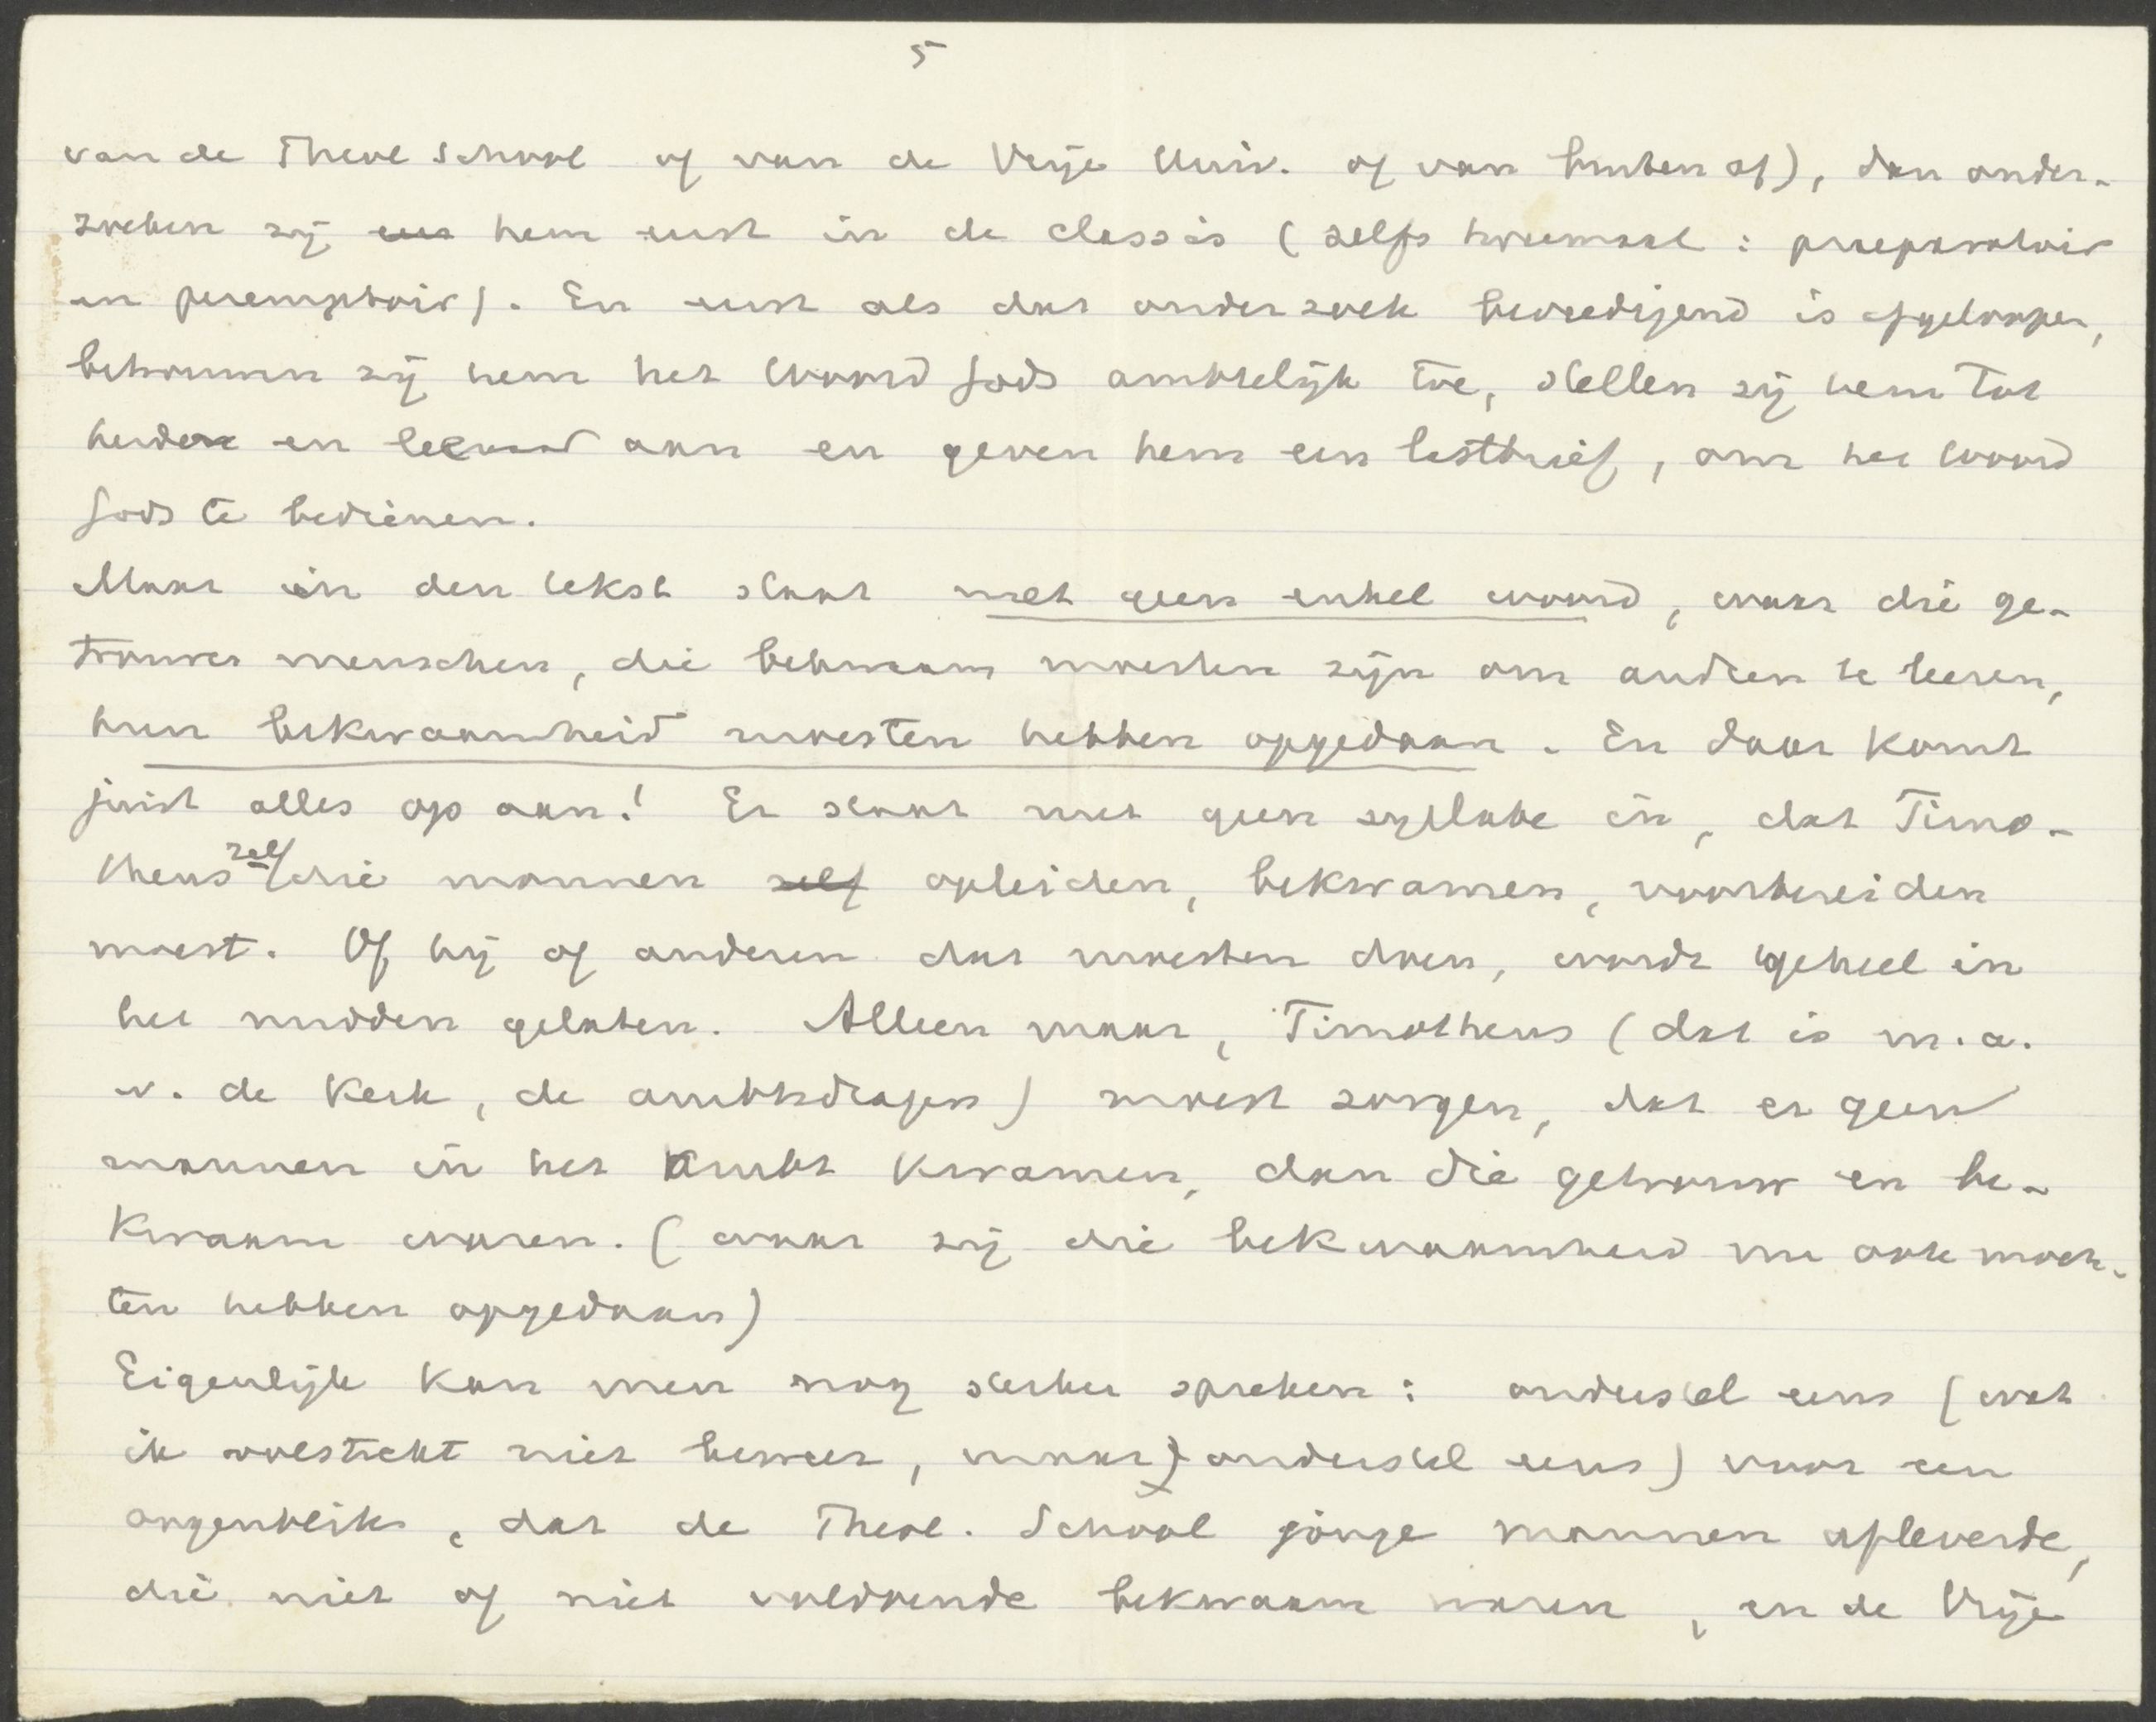 5
van de Theol School of van de Vrije Univ. of van buiten af), dan onder-
zoeken zij eer hem eerst in de classis (zelfs tweemaal: praeparatoir
en peremptoir). En eerst als dat onderzoek bevredigend is afgeloopen,
betrouwen zij hem het Woord Gods ambtelijk toe, stellen zij hem tot
herder en leeraar aan en geven hem een lastbrief, om het Woord
Gods te bedienen.
Maar in den tekst staat met geen enkel woord, waar die ge-
trouwe menschen, die bekwaam moesten zijn om andren te leeren,
hun bekwaamheid moesten hebben opgedaan. En daar komt
juist alles op aan! Er staat met geen syllabe in, dat Timo-
theus zelf die mannen zelf opleiden, bekwamen, voorbereiden
moest. Of hij of anderen dat moesten doen, wordt geheel in
het midden gelaten. Alleen maar, Timotheus (dat is m.a.
w. de Kerk, de ambtsdragers) moest zorgen, dat er geen
mannen in het Ambt kwamen, dan die getrouw en be-
kwaam waren. (waar zij die bekwaamheid nu ook moch-
ten hebben opgedaan)
Eigenlijk kan men nog sterker spreken: onderstel eens (wat
ik volstrekt niet beweer, maar) onderstel eens) voor een
oogenblik, dat de Theol. School jonge mannen afleverde,
die niet of niet voldoende bekwaam waren, en de Vrije